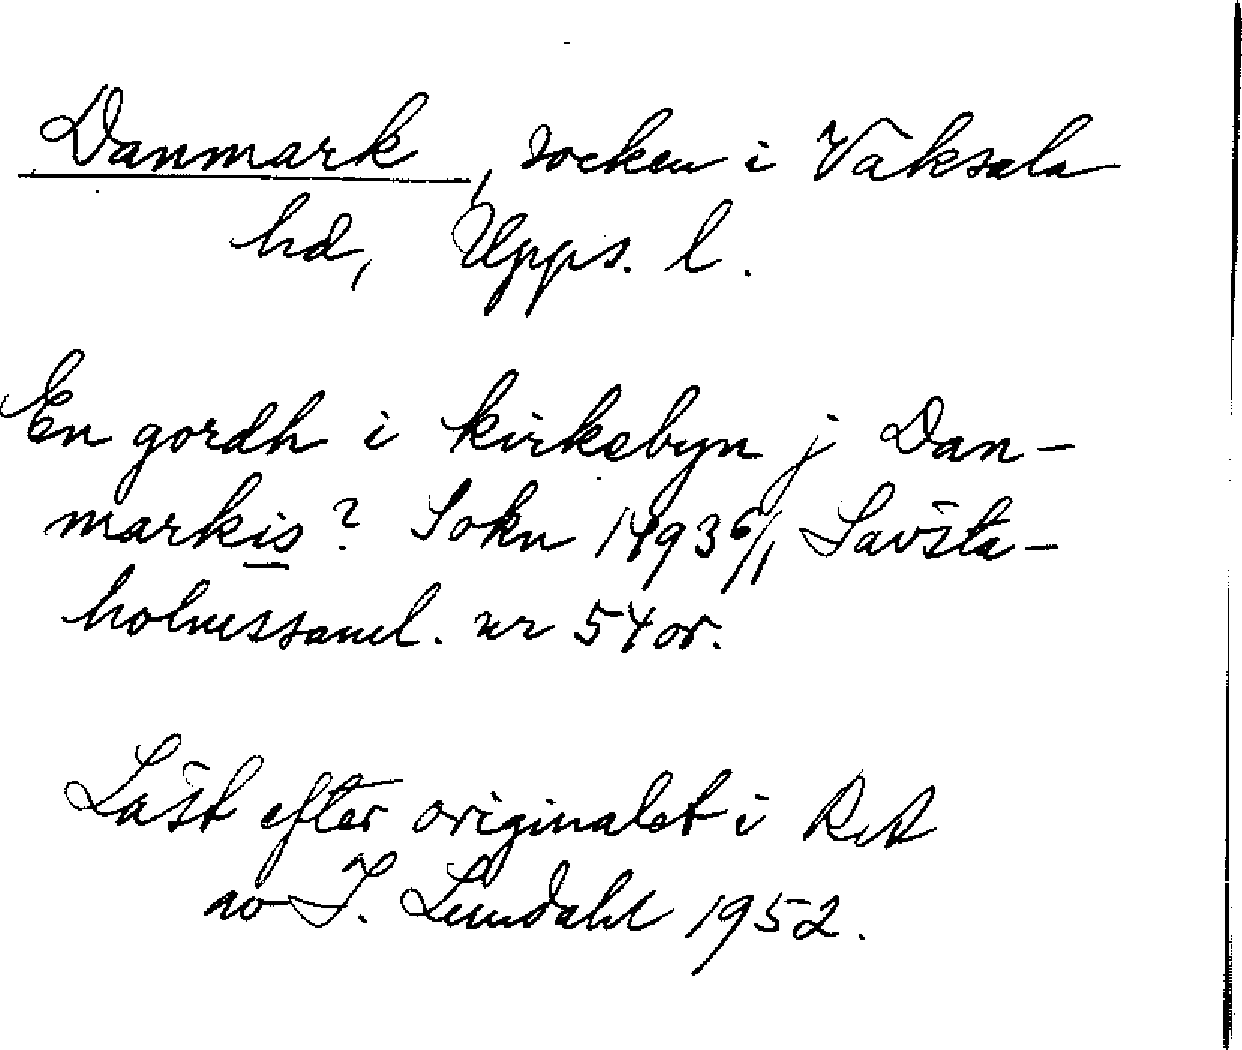 Danmark, socken i Vaksala
hd, Upps. l.
En gordh i kirkebyn j Dan-
markis? Sokn 1493 6/1 Sävsta-
holmssaml. nr 54 or.
Läst efter originalet i RA
av I. Lundahl 1952.